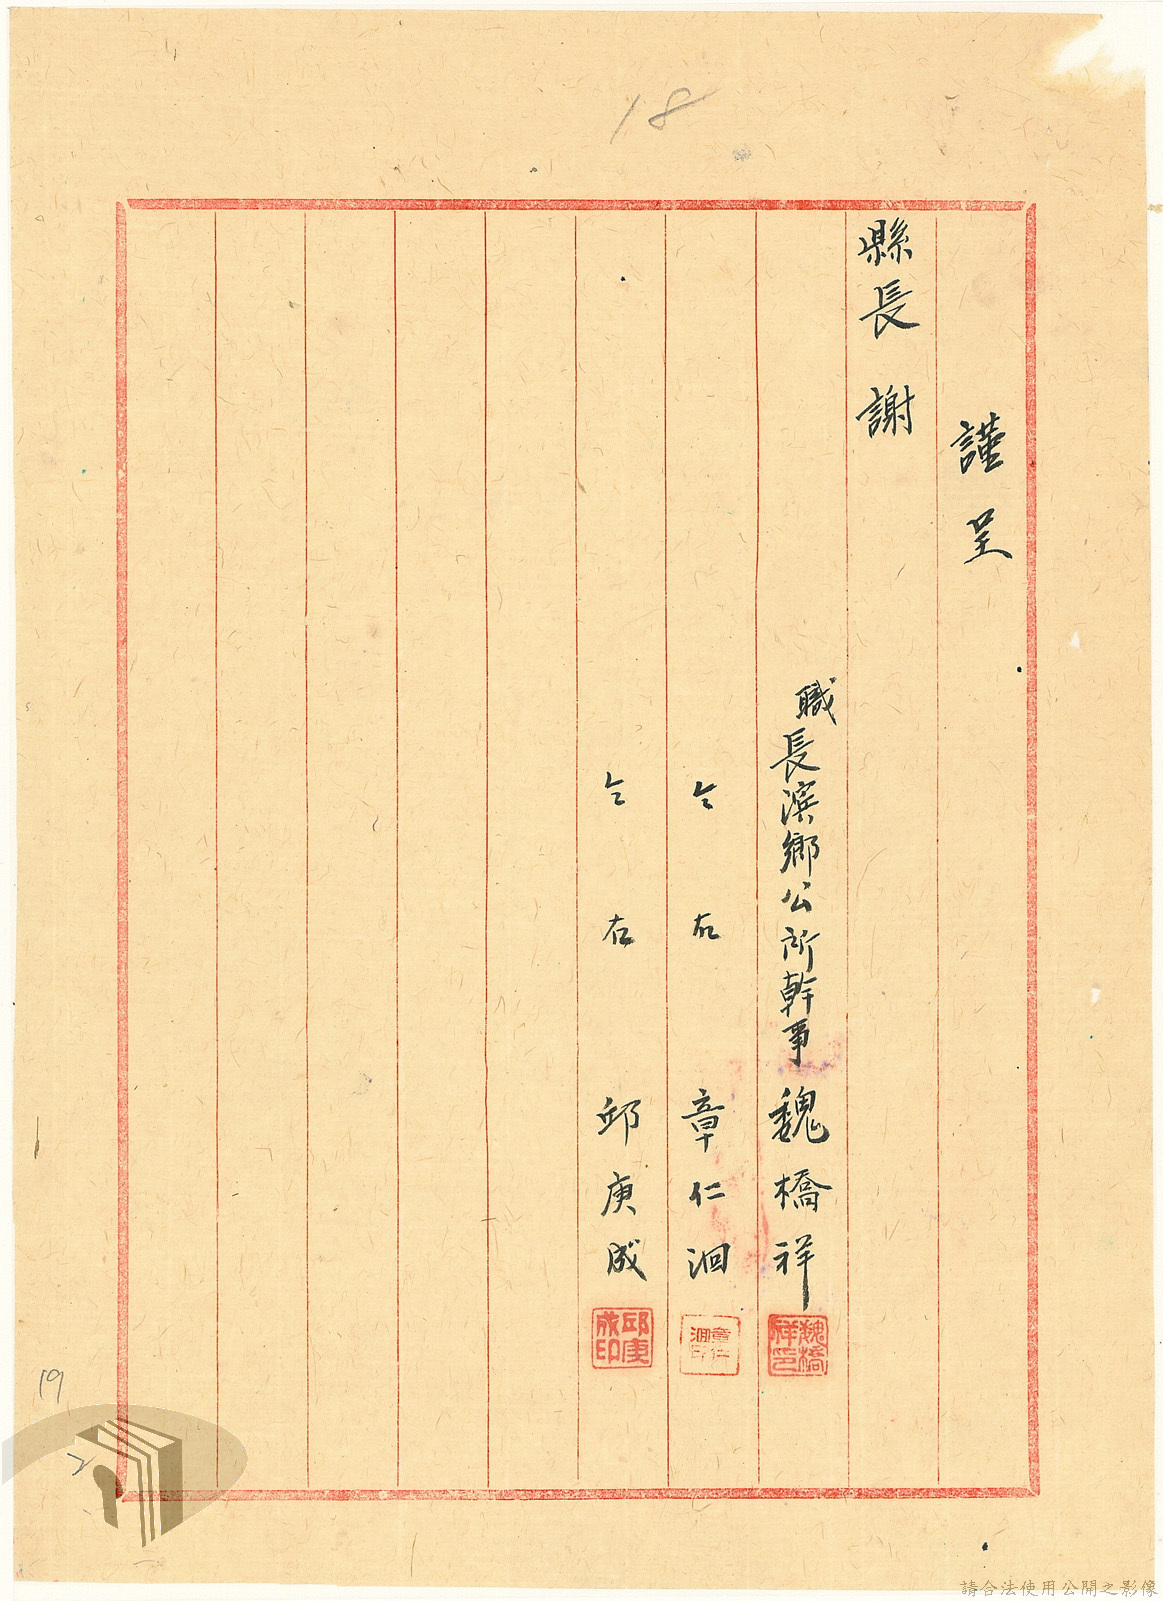 18
謹呈
縣長 謝
職長濱鄉公所幹事 魏橋祥
魏橋祥印
仝右 章仁洄
章仁洄印
仝右 邱庚成
邱庚成印
19
2
請合法使用公開之影像